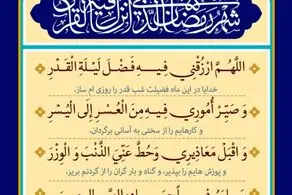 شهر رمضان الذي انزل فيه القرآن
اللَّهُمَّ ارْزُقْنِي فِيهِ فَضْلَ لَيْلَةِ الْقَدْرِ
خدایا در این ماه فضیلت شب قدر را روزی ام ساز،
وَ صَيِّرْ أُمُورِي فِيهِ مِنَ الْعُسْرِ إِلَى الْيُسْرِ
و کارهایم را از سختی به آسانی برگردان،
وَ اقْبَلْ مَعَاذِيرِي وَ حُطَّ عَنِّيَ الذَّنْبَ وَ الْوِزْرَ
و پوزش هایم را بپذیر، و گناه و بار گران را از گردنم بریز،